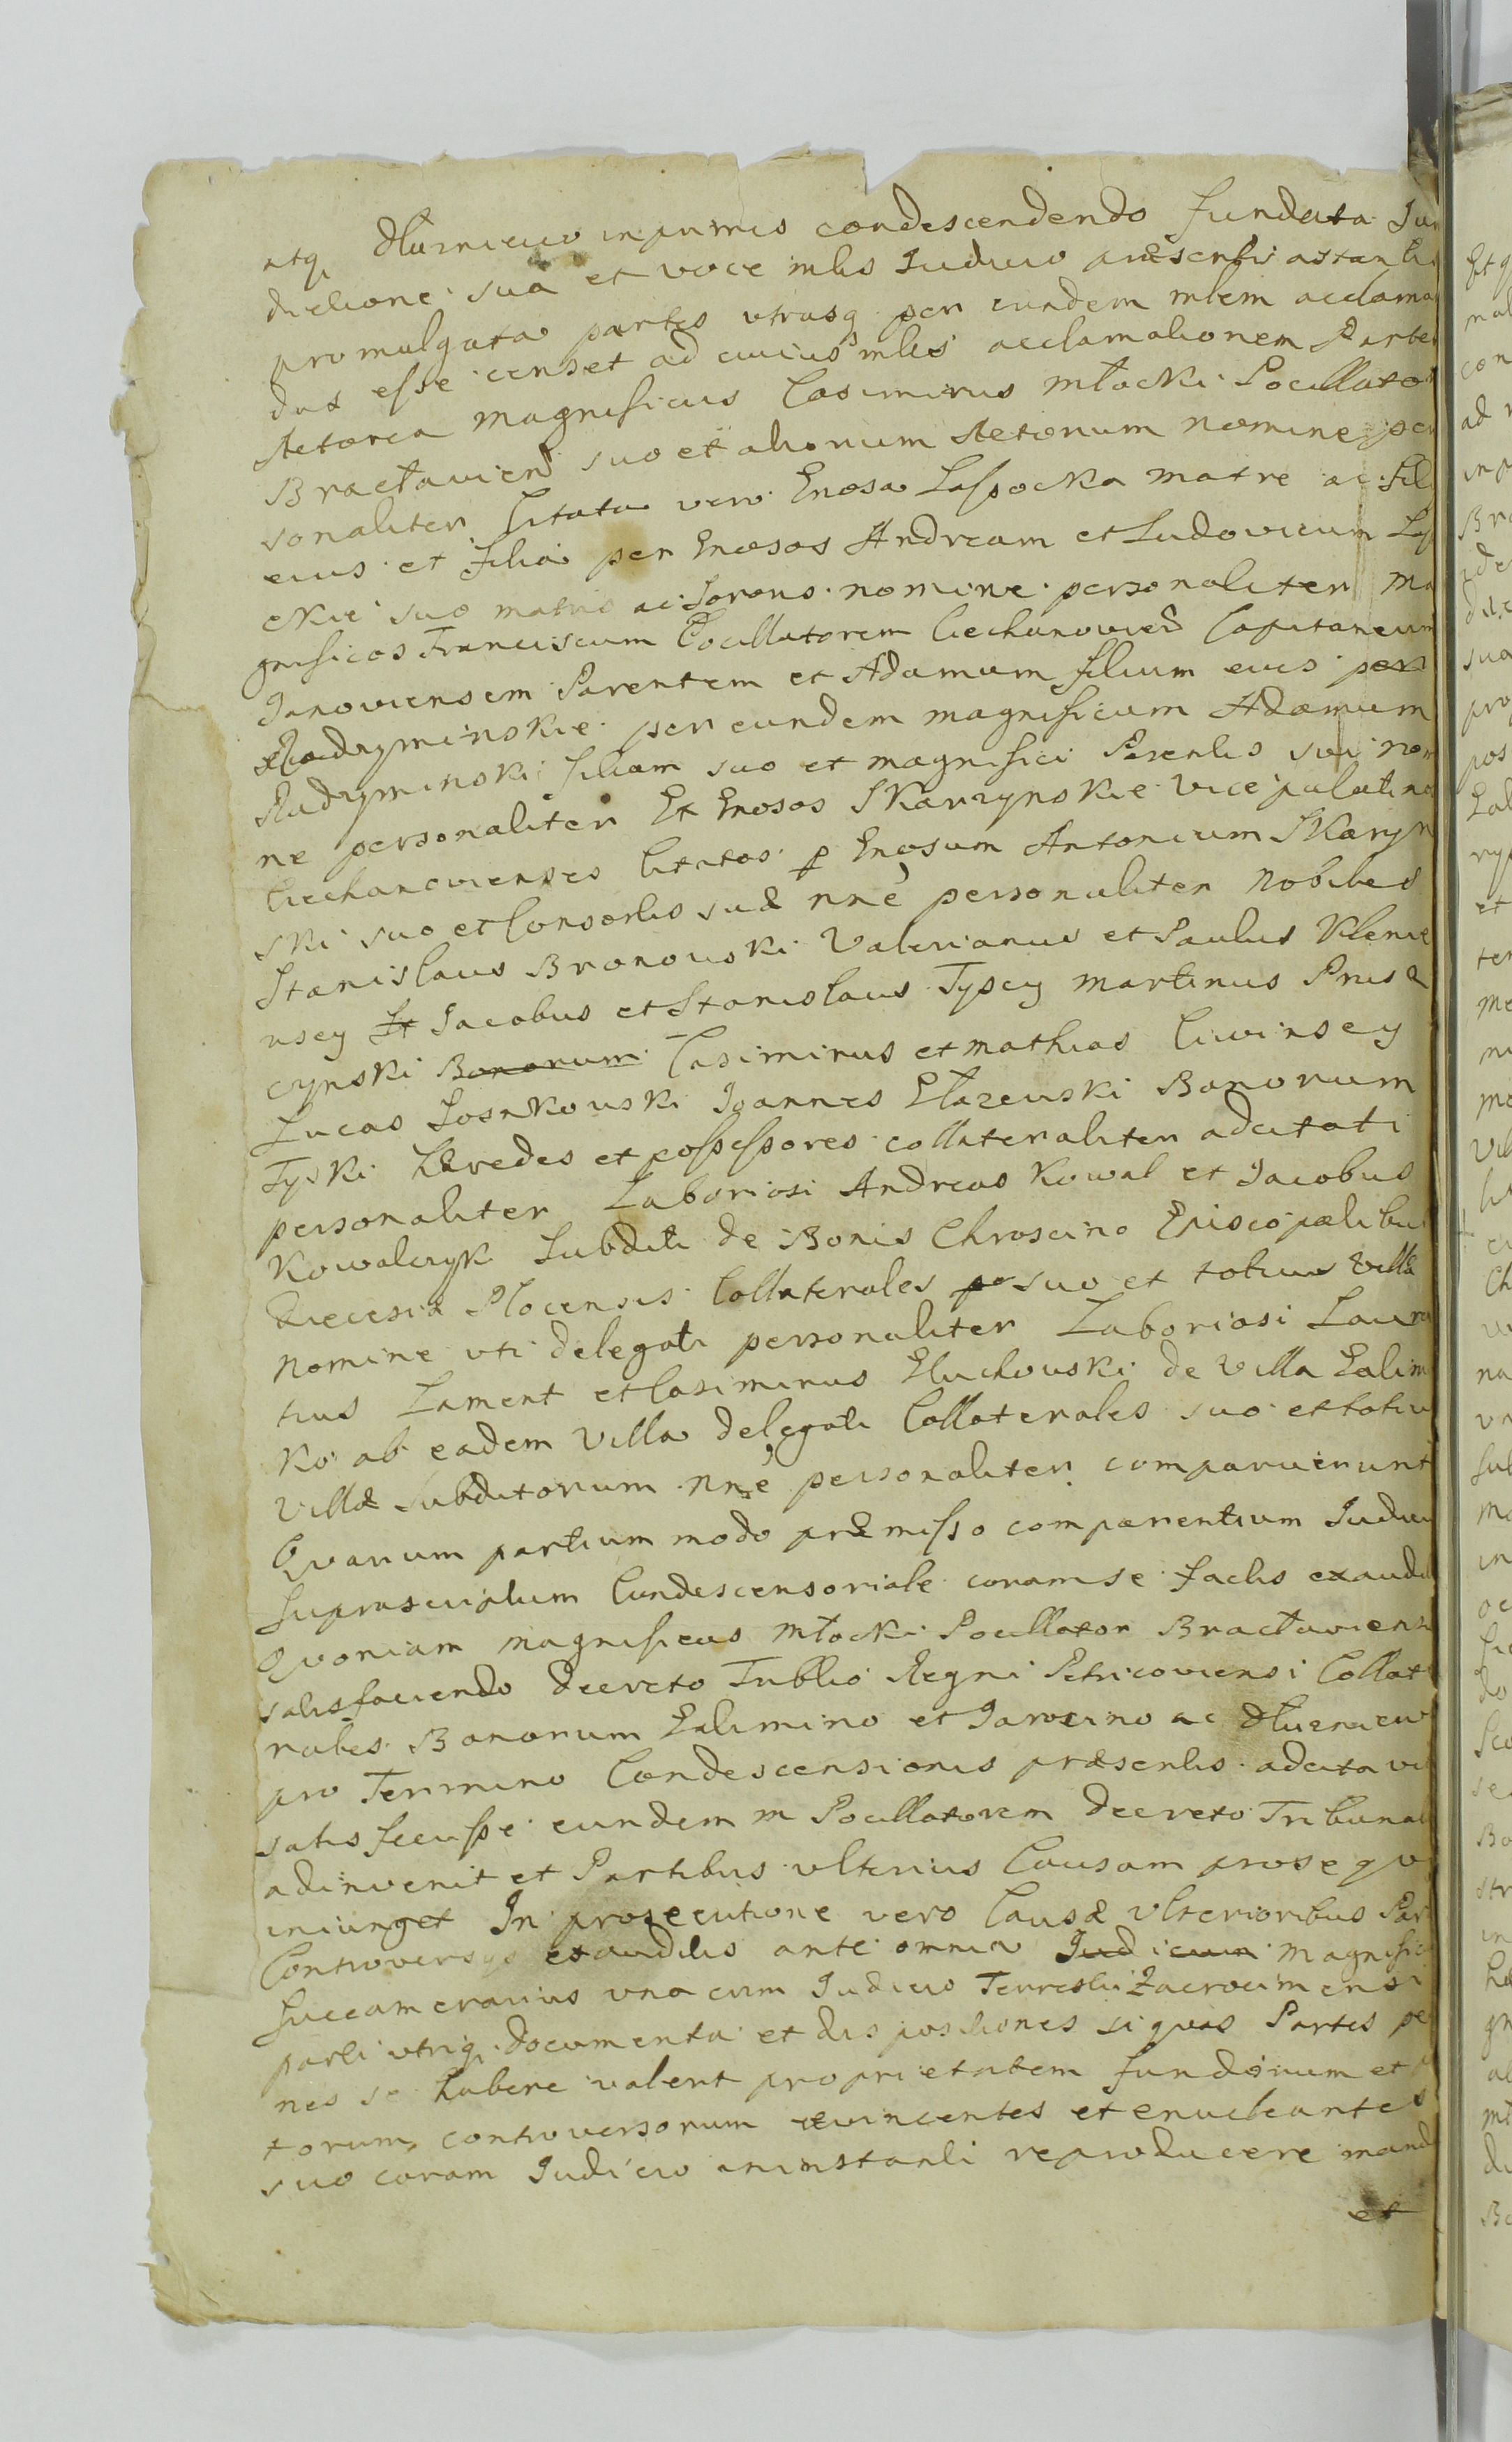 atq Dłużniewo inprimis condescendendo fundata Iur
dictione sua et voce mlis Iudicio præsentis astantis
promulgata partes utrasq per eundem mlem acclaman
das esse censet ad cuius mlis acclamationem Parte
Actorea magnificus Casimirus Młocki Pocillator
Bractavien suo et aliorum Actorum nomine per
sonaliter Citata vero Gnosa Lasocka matre ac fili
eius et filia per Gnosos Andream et Ludovicum Las
ckie suo matris ac Sororis nomine personaliter Ma
gnificos Franciscum Pocillatorem Ciechanovien Capitaneum
Ianoviensem Parentem et Adamum filium eius per
Radzyminskie per eundem magnificum Adamum
Radzyminski filium suo et magnifici Parentis sui nom
ne personaliter Et Gnosos Skarzynskie Vice palatino
Ciechanovienses Citatos p Gnosum Antonium Skarzyn
ski suo et Consortis suæ nnè personaliter Nobiles
Stanislaus Bronowski Valerianus et Paulus Klenie
wscy Et Iacobus et Stanislaus Tyscy Martinus Prus
czynski Bonorum Casimirus et Mathias Civinscy
Lucas Sosnkowski Ioannes Głazewski Bonorum
Tyski hæredes et possessores collateraliter adcitati
personaliter Laboriosi Andreas Kowal et Iacobus
Kowalczyk Subditi de Bonis Chroscino Episcopalibus
Diecesia Plocensis Collaterales po suo et totius villæ
nomine uti delegati personaliter Laboriosi Lauren
tius Lament et Casimirus Głuchowski de Villa Galim
ko ab eadem Villa delegati Collaterales suo et totiu
Villæ subditorum nnè personaliter comparuerunt
Quarum partium modo præmisso comparentium Iudiciu
suprascriptum Condescensoriale coram se factis exaudit
Quoniam magnificus Młocki Pocillator Bractaviens
satisfaciendo Decreto Tribblis Regni Petricoviensi Collate
rales Bonorum Galimino et Jarocino ac Dłużniewo
pro Termino Condescensionis præsentis adcitavi
satisfecisse eundem m Pocillatorem Decreto Tribunal
adinvenit et Partibus ulterius Causam prosequi
iniunget In prosecutione vero Causæ ulterioribus Par
Controversys exauditis ante omnia Iudicium Magnific
Succamerarius una cum Iudicio Terrestri Zacrocimensi
parti utriq documenta et dispositiones si quas Partes pe
nes se habere valent proprietatem fundorum et
torum controversorum evincentes et enucleantes
suo coram Iudicio aninstanti reproducere mand
et